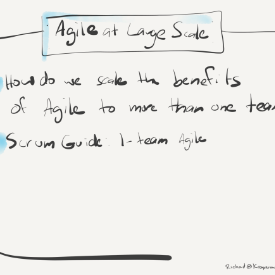 Agile at Large Scale
How do we scale the benefits
of Agile to more than one team
Scrum Guide: 1-team Agile